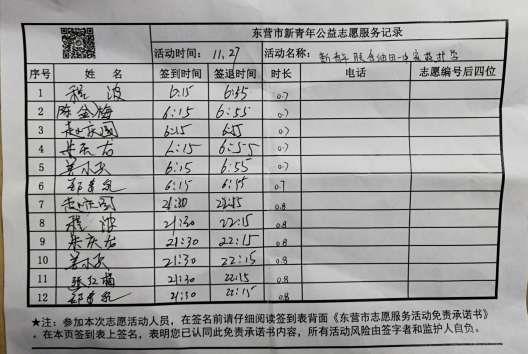 东营市新青年公益志愿服务记录
活动时间： 11.27 活动名称：
序号 姓 名 签到时间 签退时间 时长 电话 志愿编号后四位
1 程 波 6:15 6:55 0.7
2 陈金梅 6:15 6:55 0.7
3 6:15 6:55 0.7
4 6:15 6:55 0.7
5 6:15 6:55 0.7
6 6:15 6:55 0.7
7 21:30 22:15 0.8
8 程 波 21:30 22:15 0.8
9 21:30 22:15 0.8
10 21:30 22:15 0.8
11 张红梅 21:30 22:15 0.8
12 21:30 22:15 0.8
★注：参加本次志愿活动人员，在签名前请仔细阅读签到表背面《东营市志愿服务活动免责承诺书》
。在本页签到表上签名，表明您已认同此免责承诺书内容，所有活动风险由签字者和监护人自负。